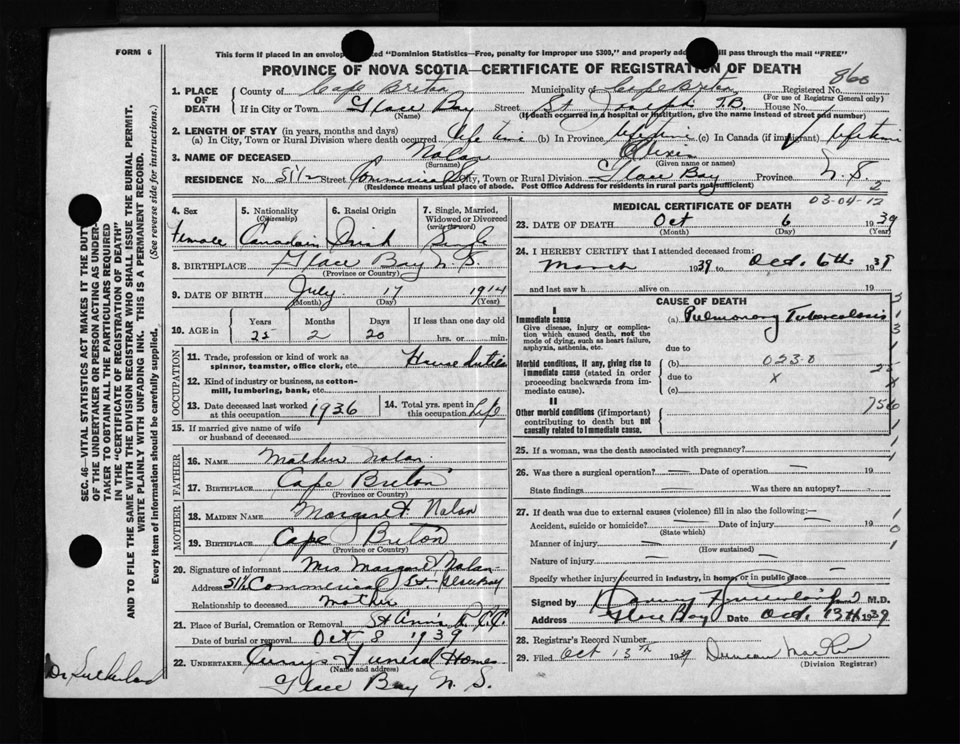 FORM 6
This form if placed in an envelop ed "Dominion Statistics—Free, penalty for improper use $300," and properly add will pass through the mail "FREE"
PROVINCE OF NOVA SCOTIA—CERTIFICATE OF REGISTRATION OF DEATH
860
1. PLACE OF DEATH
County of Cape Breton Municipality of Cape Breton Registered No.
(For use of Registrar General only)
If in City or Town Glace Bay Street St Joseph T.B. House No.
(Name) (If death occurred in a hospital or institution, give the name instead of street and number)
2. LENGTH OF STAY (in years, months and days)
(a) In City, Town or Rural Division where death occurred life time (b) In Province lifetime (c) In Canada (if immigrant) lifetime
3. NAME OF DECEASED Nolan
(Surname) (Given name or names)
RESIDENCE No. 51½ Commercial St City, Town or Rural Division Glace Bay Province N.S.
(Residence means usual place of abode. Post Office Address for residents in rural parts not sufficient)
2
03-04-12
4. Sex Female
5. Nationality (Citizenship) Canadain
6. Racial Origin Irish
7. Single, Married, Widowed or Divorced (write the word) Single
8. BIRTHPLACE Glace Bay N.S.
(Province or Country)
9. DATE OF BIRTH July 17 1914
(Month) (Day) (Year)
10. AGE in Years Months Days If less than one day old
25 2 20 hrs. or min.
OCCUPATION
11. Trade, profession or kind of work as spinner, teamster, office clerk, etc. House duties
12. Kind of industry or business, as cotton-mill, lumbering, bank, etc.
13. Date deceased last worked at this occupation 1936
14. Total yrs. spent in this occupation life
15. If married give name of wife or husband of deceased
FATHER
16. NAME Nolan
17. BIRTHPLACE Cape Breton
(Province or Country)
MOTHER
18. MAIDEN NAME Margaret Nolan
19. BIRTHPLACE Cape Breton
(Province or Country)
20. Signature of informant Mrs Margaret Nolan
Address 51½ Commercial St. Glace Bay
Relationship to deceased mother
21. Place of Burial, Cremation or Removal St Ann's
Date of burial or removal Oct 8 1939
22. UNDERTAKER Curry's Funeral Home
(Name and address)
Glace Bay N.S.
MEDICAL CERTIFICATE OF DEATH
23. DATE OF DEATH Oct 6 1939
(Month) (Day) (Year)
24. I HEREBY CERTIFY that I attended deceased from:
March 1939 to Oct. 6th 1939
and last saw h alive on 19
CAUSE OF DEATH
I
Immediate cause (a) Pulmonary Tuberculosis
Give disease, injury or complication which caused death, not the mode of dying, such as heart failure, asphyxia, asthenia, etc.
due to
Morbid conditions, if any, giving rise to immediate cause (stated in order proceeding backwards from immediate cause).
(b) 023-0
due to x
(c)
II
Other morbid conditions (if important) contributing to death but not causally related to immediate cause.
25. If a woman, was the death associated with pregnancy?
26. Was there a surgical operation? — Date of operation — 19
State findings Was there an autopsy?
27. If death was due to external causes (violence) fill in also the following:—
Accident, suicide or homicide? — Date of injury — 19
(State which)
Manner of injury —
(How sustained)
Nature of injury —
Specify whether injury occurred in industry, in home, or in public place
Signed by M.D.
Address Glace Bay Date Oct. 13th 1939
28. Registrar's Record Number
29. Filed Oct 13th 1939 Duncan
(Division Registrar)
SEC. 46—VITAL STATISTICS ACT MAKES IT THE DUTY
OF THE UNDERTAKER OR PERSON ACTING AS UNDER-
TAKER TO OBTAIN ALL THE PARTICULARS REQUIRED
IN THE "CERTIFICATE OF REGISTRATION OF DEATH"
AND TO FILE THE SAME WITH THE DIVISION REGISTRAR WHO SHALL ISSUE THE BURIAL PERMIT.
WRITE PLAINLY WITH UNFADING INK. THIS IS A PERMANENT RECORD.
Every item of information should be carefully supplied. (See reverse side for instructions.)
Dr Sutherland